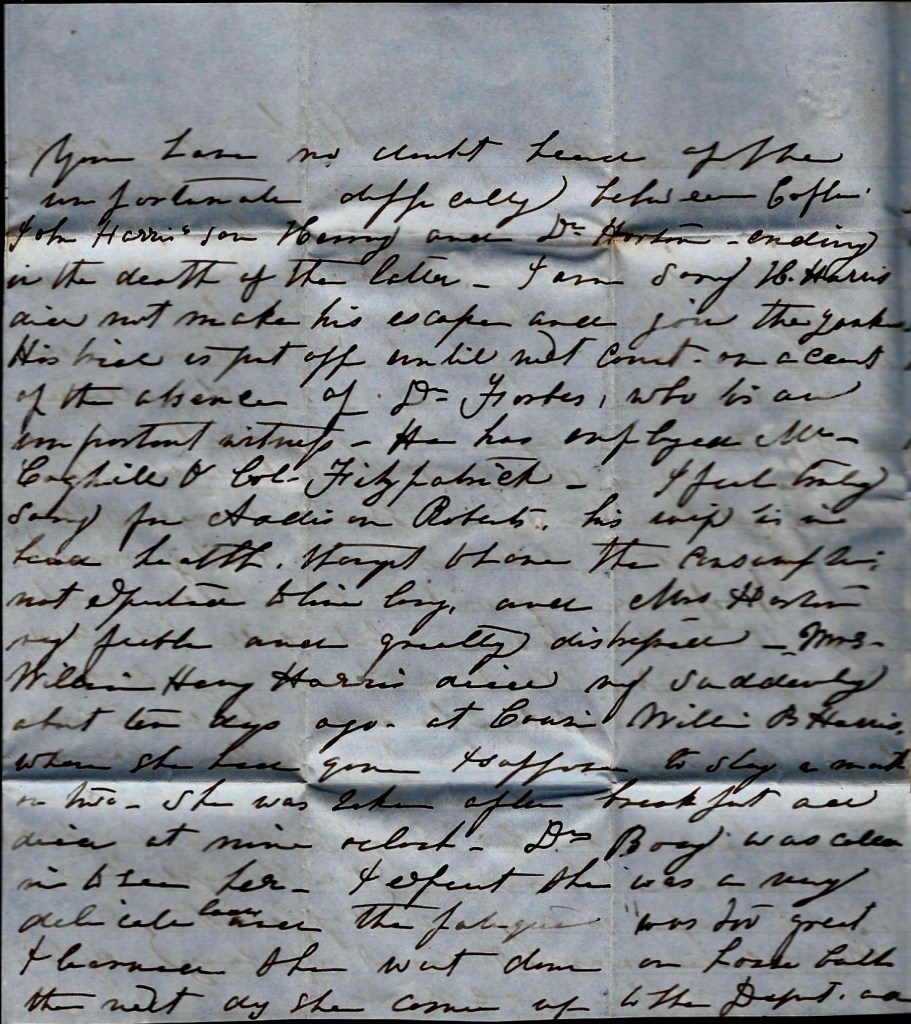 You have no doubt heard of the
unfortunate difficulty between Captn
John Harris' son Henry and Dr Horton - ending
in the death of the latter - I am sorry H. Harris
did not make his escape and join the Yankees
His trial is put off until next court - on account
of the absence of Dr Forbes, who is an
important witness - He has employed Mr -
Coghill & Col - Fitzpatrick - I feel truly
sorry for Addison Roberts, his wife is in
bad health, thought to have the consumption
not expected to live long, and Mrs Horton
very feeble and greatly distressed - Mrs -
William Henry Harris died very suddenly
about ten days ago - at Cousin William B Harris,
where she had gone I suppose to stay a month
or two - She was taken after breakfast and
died at nine oclock - Dr was called
in to see her - I expect she was a very
delicate lady and the fatigue was too great
I learned she went down on horse back
the next day she came up to the Depot. and